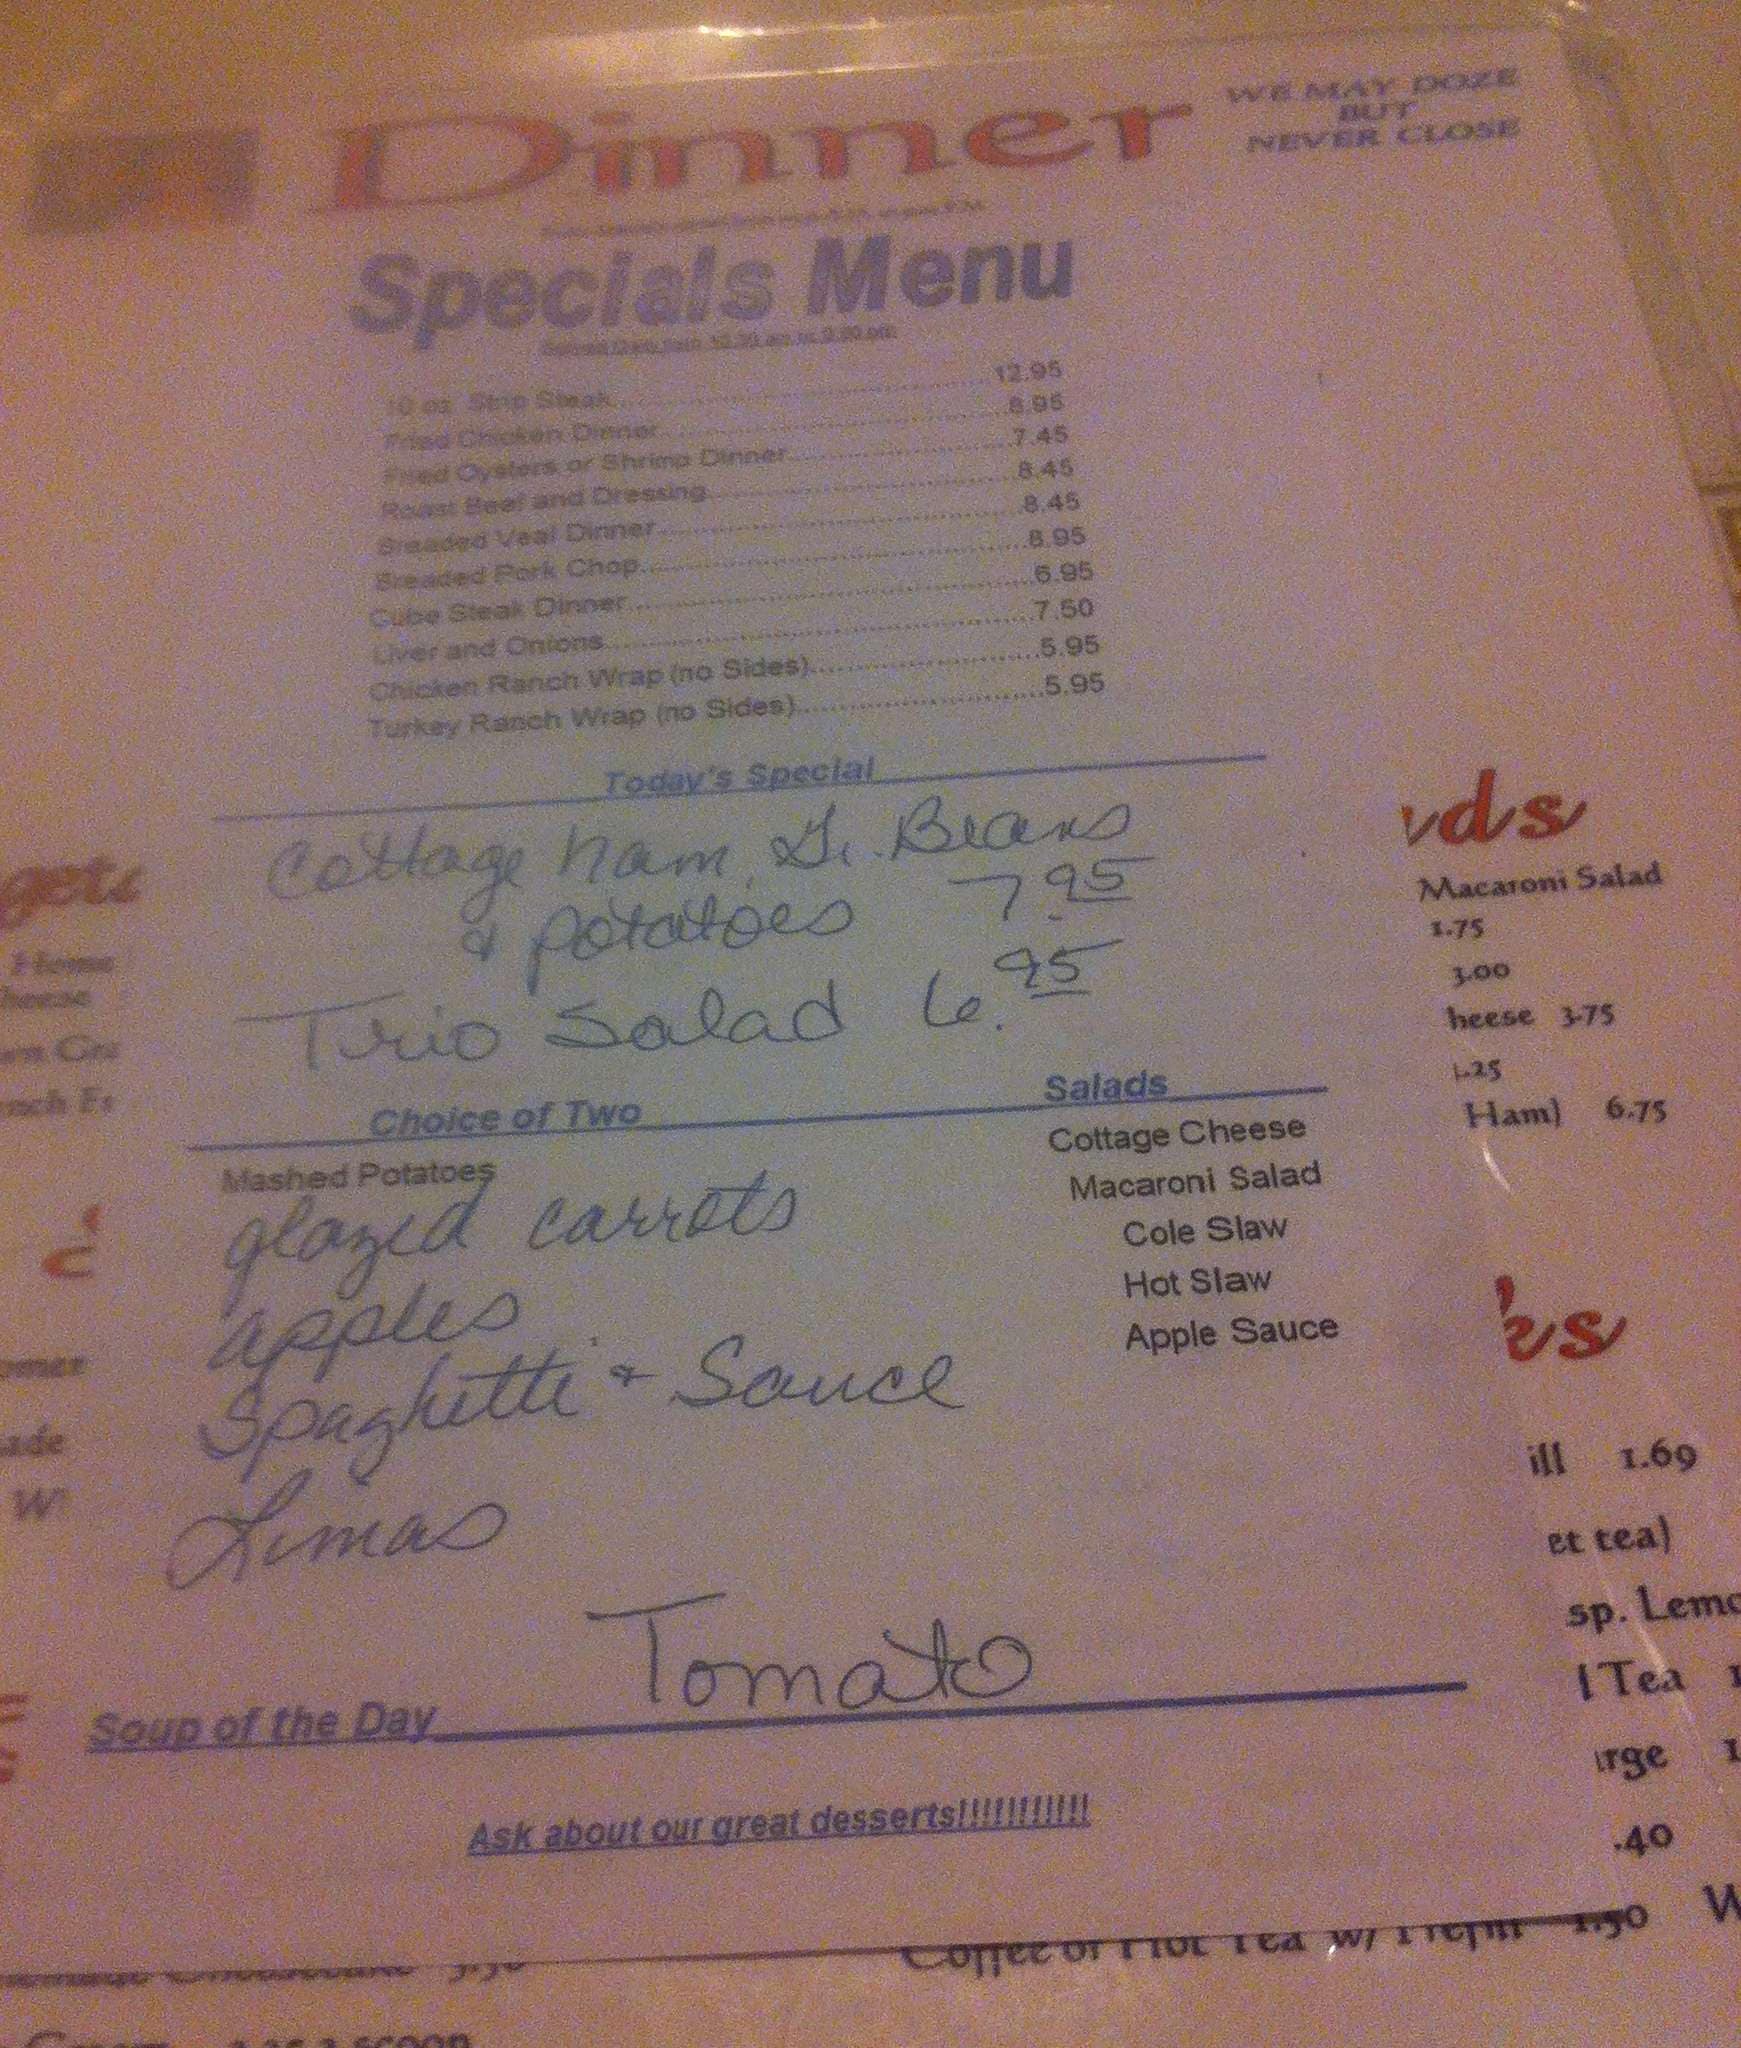 Dinner
WE MAY DOZE
BUT
NEVER CLOSE
Specials Menu
10 oz. Strip Steak 12.95
Fried Chicken Dinner 8.95
Fried Oysters or Shrimp Dinner 7.45
Roast Beef and Dressing 8.45
Breaded Veal Dinner 8.45
Breaded Pork Chop 8.95
Cube Steak Dinner 6.95
Liver and Onions 7.50
Chicken Ranch Wrap (no Sides) 5.95
Turkey Ranch Wrap (no Sides) 5.95
Today's Special
Cottage ham, Gr. Beans
& potatoes 7.95
Trio Salad 6.95
Choice of Two
Mashed Potatoes
glazed carrots
apples
Spaghetti & Sauce
Limas
Salads
Cottage Cheese
Macaroni Salad
Cole Slaw
Hot Slaw
Apple Sauce
Soup of the Day Tomato
Ask about our great desserts!!!!!!!!!!!
Home
Macaroni Salad
1.75
3.00
heese 3.75
Ham) 6.75
ill 1.69
et tea)
sp.
Tea
.40
Coffee or Hot Tea w/ 1 refill 1.50
scoop